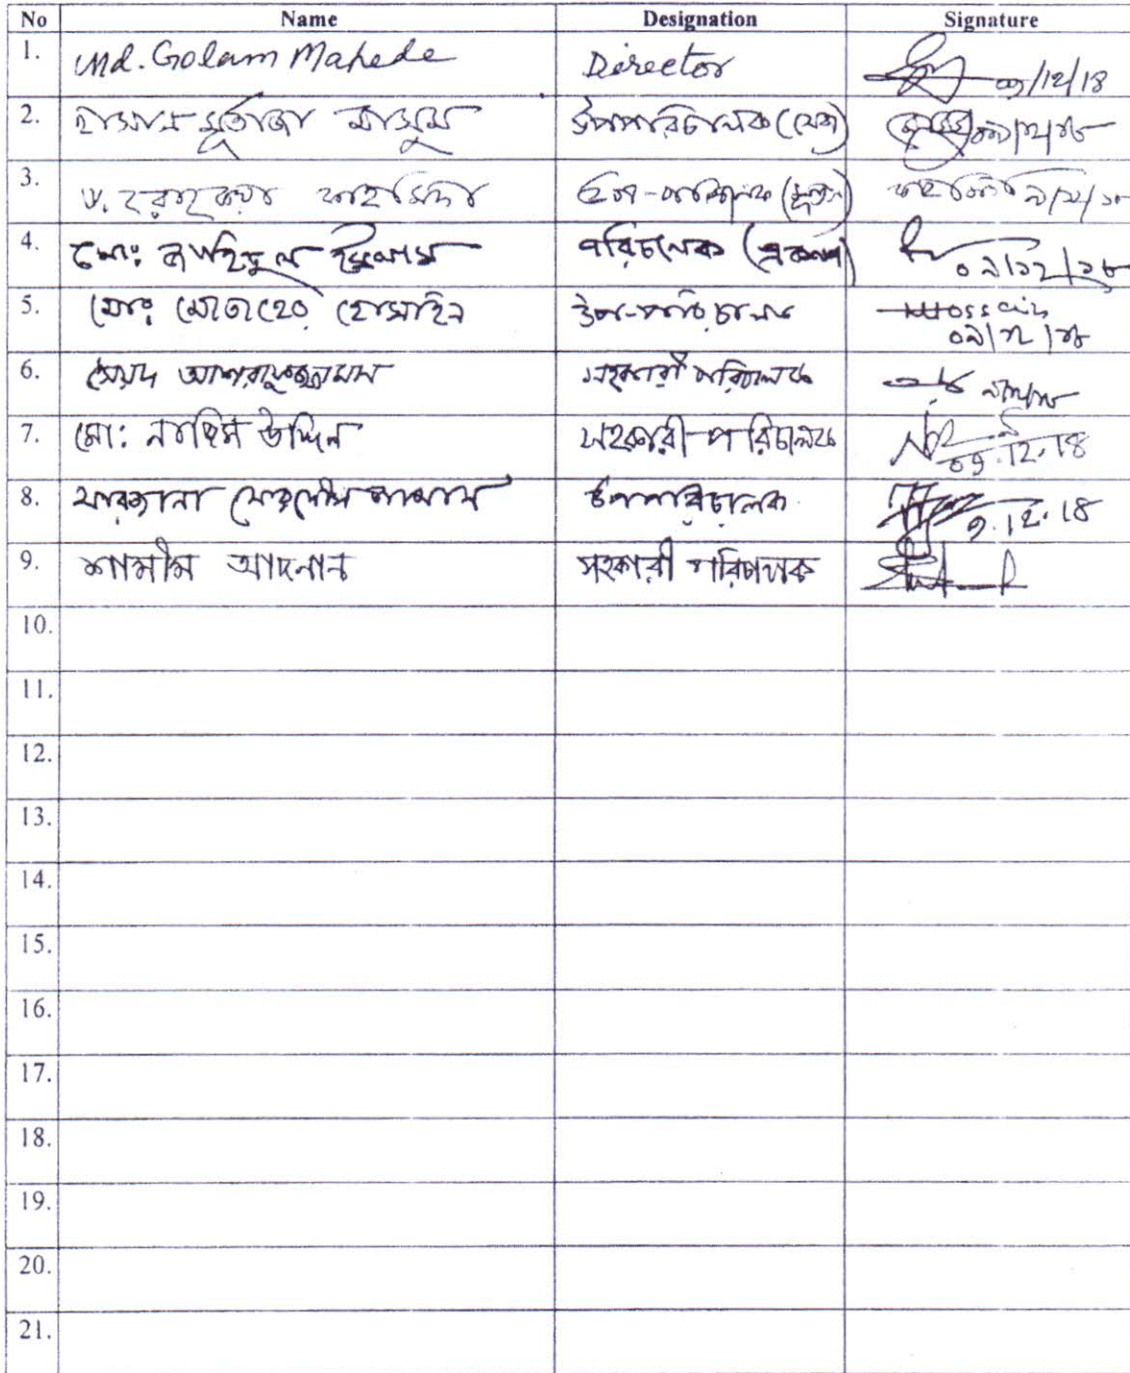 No Name Designation Signature
1. Md. Golam Mahede Director 09/12/18
2. হাসান মূর্তাজা মাসুম উপপরিচালক ০৯/১২/১৮
3. ফাহমিদা ৯/১২/১৮
4. মোঃ জাহিদুল ইসলাম পরিচালক ০৯/১২/১৮
5. মোঃ মোতাহের হোসাইন উপ-পরিচালক Hossain
০৯/১২/১৮
6. সৈয়দ আশরাফুজ্জামান সহকারী পরিচালক ৯/১২/১৮
7. মো: নাছিম উদ্দিন সহকারী পরিচালক 09.12.18
8. উপপরিচালক 9.12.18
9. শামীম আদনান সহকারী পরিচালক
10.
11.
12.
13.
14.
15.
16.
17.
18.
19.
20.
21.